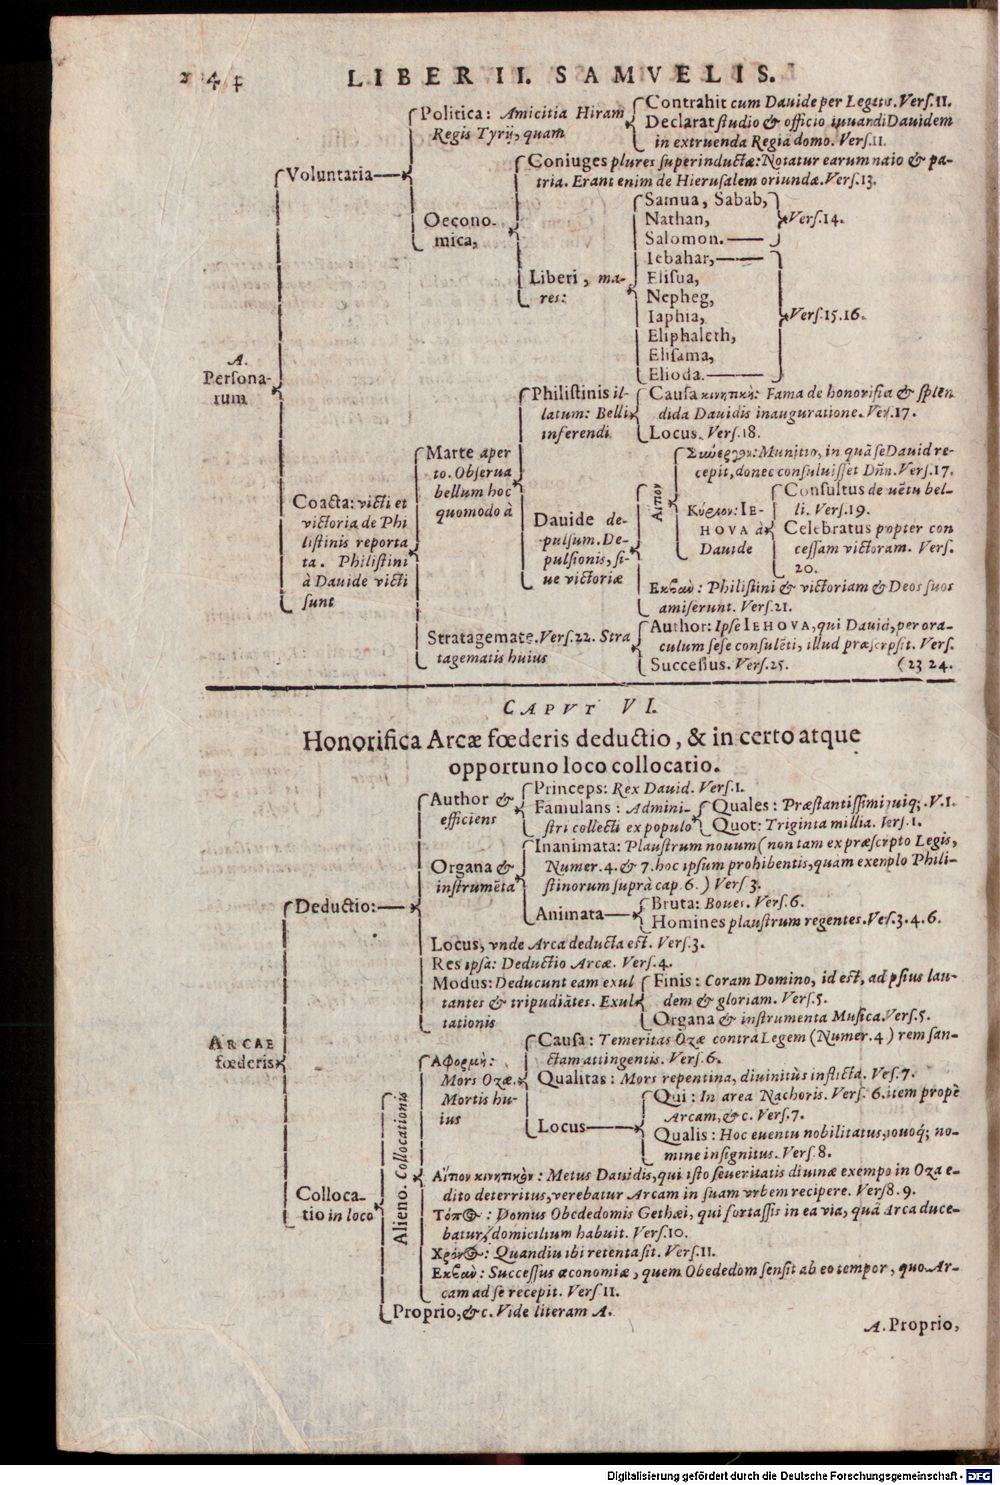 LIBER II. SAMVELIS.
Politica: Amicitia Hiram
Regis Tyrij, quam
Contrahit cum Dauide per Legatos. Verſ. 11.
Declarat ſtudio & officio iuuandi Dauidem
in extruenda Regia domo. Verſ. 11.
Voluntaria
Coniuges plures ſuperinductæ: Notatur earum natio & pa-
tria. Erant enim de Hieruſalem oriundæ. Verſ. 13.
Oecono-
mica,
Liberi, ma-
res:
Samua, Sabab,
Nathan,
Salomon.
Verſ. 14.
Iebahar,
Eliſua,
Nepheg,
Iaphia,
Eliphaleth,
Eliſama,
Elioda.
Verſ. 15. 16.
A.
Perſona-
rum
Coacta: victi et
victoria de Phi
liſtinis reporta
ta. Philiſtini
à Dauide victi
ſunt
Marte aper
to. Obſerua
bellum hoc
quomodo à
Philiſtinis il-
latum: Belli
inferendi
Cauſa κινητικὴ: Fama de honorifica & ſplen
dida Dauidis inauguratione. Verſ. 17.
Locus. Verſ. 18.
Dauide de-
pulſum. De-
pulſionis, ſi-
ue victoriæ
Αἴτιον
Συνεργὸν: Munitio, in quā ſe Dauid re-
cepit, donec conſuluiſſet Dñn. Verſ. 17.
Κύριον: IE-
HOVA à
Dauide
Conſultus de uētu bel-
li. Verſ. 19.
Celebratus propter con
ceſſam victoram. Verſ.
20.
Εκβαὼ: Philiſtini & victoriam & Deos ſuos
amiſerunt. Verſ. 21.
Stratagemate. Verſ. 22. Stra
tagematis huius
Author: Ipſe IEHOVA, qui Dauid, per ora-
culum ſeſe conſulēti, illud præſcrpſit. Verſ.
Succeſſus. Verſ. 25. (23 24.
CAPVT VI.
Honorifica Arcæ fœderis deductio, & in certo atque
opportuno loco collocatio.
ARCAE
fœderis
Deductio:
Author &
efficiens
Princeps: Rex Dauid. Verſ. 1.
Famulans: Admini-
ſtri collecti ex populo
Quales: Præſtantiſſimi quiq;. V. 1.
Quot: Triginta millia. Verſ. 1.
Organa &
inſtrumēta
Inanimata: Plauſtrum nouum (non tam ex præſcrpto Legis,
Numer. 4. & 7. hoc ipſum prohibentis, quam exemplo Phili-
ſtinorum ſuprà cap. 6.) Verſ 3.
Animata
Bruta: Boues. Verſ. 6.
Homines plauſtrum regentes. Veſ. 3. 4. 6.
Locus, vnde Arca deducta eſt. Verſ. 3.
Res ipſa: Deductio Arcæ. Verſ. 4.
Modus: Deducunt eam exul
tantes & tripudiātes. Exul
tationis
Finis: Coram Domino, id eſt, ad pſius lau-
dem & gloriam. Verſ. 5.
Organa & inſtrumenta Muſica. Verſ. 5.
Colloca-
tio in loco
Alieno. Collocationis
Αφορμὴ:
Mors Ozæ.
Mortis hu-
ius
Cauſa: Temeritas Ozæ contra Legem (Numer. 4) rem ſan-
ctam attingentis. Verſ. 6.
Qualitas: Mors repentina, diuinitùs inflicta. Veſ. 7.
Locus
Qui: In area Nachoris. Verſ. 6. item propè
Arcam, & c. Verſ. 7.
Qualis: Hoc euentu nobilitatus, nouoq; no-
mine inſignitus. Verſ 8.
Αἴτιον κινητικὸν: Metus Dauidis, qui iſto ſeueritatis diuinæ exempo in Oza e-
dito deterritus, verebatur Arcam in ſuam vrbem recipere. Verſ 8. 9.
Τόπος: Domus Obededomis Gethæi, qui fortaſſis in ea via, quâ Arca duce-
batur, domicilium habuit. Verſ. 10.
Χρόνος: Quandiu ibi retenta ſit. Verſ. 11.
Εκβαὼ: Succeſſus œconomiæ, quem Obededom ſenſit ab eo tempor, quo Ar-
cam ad ſe recepit. Verſ 11.
Proprio, & c. Vide literam A.
A. Proprio,
Digitalisierung gefördert durch die Deutsche Forschungsgemeinschaft - DFG